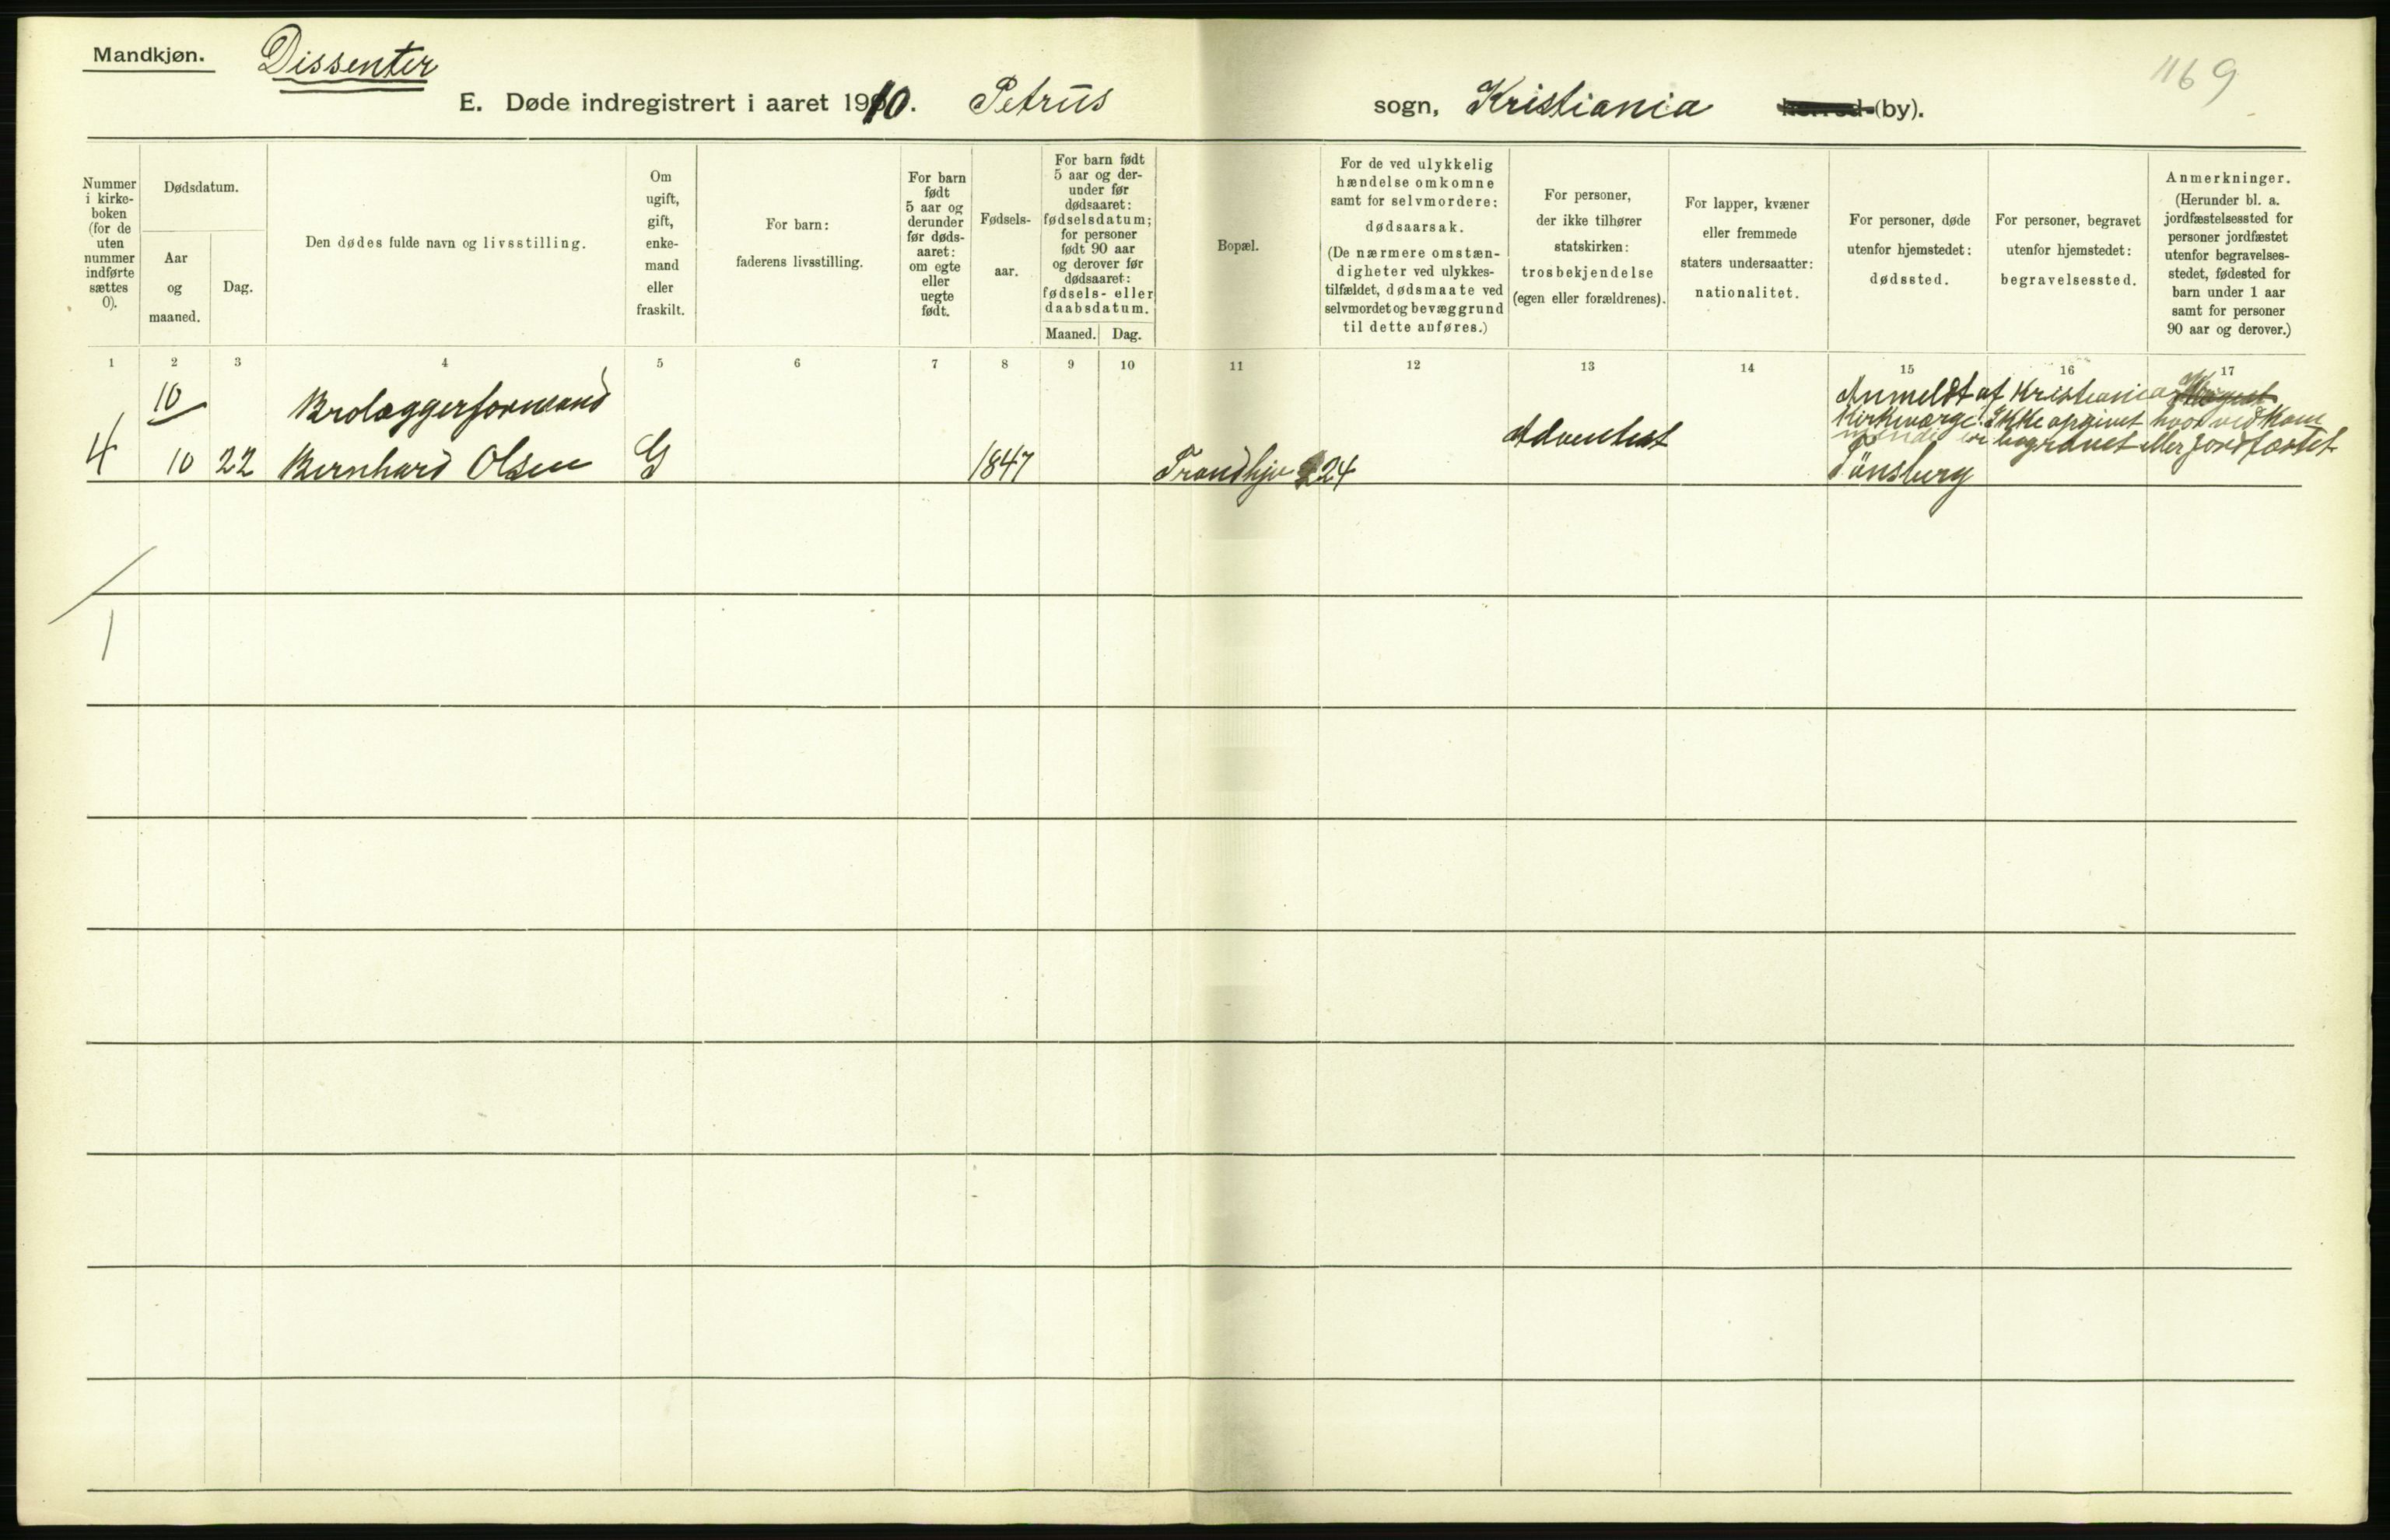 Mandkjøn.
Dissenter
E. Døde indregistrert i aaret 1910. Petrus sogn, Kristiania herred (by).
1169
Nummer i kirke-boken (for de uten nummer indførte sættes 0).
Dødsdatum.
Aar og maaned.
Dag.
Den dødes fulde navn og livsstilling.
Om ugift, gift, enke-mand eller fraskilt.
For barn: faderens livsstilling.
For barn født 5 aar og derunder før døds-aaret: om egte eller uegte født.
Fødsels-aar.
For barn født 5 aar og der-under før dødsaaret: fødselsdatum; for personer født 90 aar og derover før dødsaaret: fødsels- eller daabsdatum.
Maaned.
Dag.
Bopæl.
For de ved ulykkelig hændelse omkomne samt for selvmordere: dødsaarsak. (De nærmere omstæn-digheter ved ulykkes-tilfældet, dødsmaate ved selvmordet og bevæggrund til dette anføres.)
For personer, der ikke tilhører statskirken: trosbekjendelse (egen eller forældrenes).
For lapper, kvæner eller fremmede staters undersaatter: nationalitet.
For personer, døde utenfor hjemstedet: dødssted.
For personer, begravet utenfor hjemstedet: begravelsessted.
Anmerkninger. (Herunder bl. a. jordfæstelsessted for personer jordfæstet utenfor begravelses-stedet, fødested for barn under 1 aar samt for personer 90 aar og derover.)
1 2 3 4 5 6 7 8 9 10 11 12 13 14 15 16 17
10 Brolæggerformand Anmeldt af Kristiania
Kirkeværge. Ikke opgivet hvor vedkom
mende er begravet eller jordfæstet
4 10 22 Bernhard Olsen G 1847 Trondhjv 24 Adventist Tönsberg
1